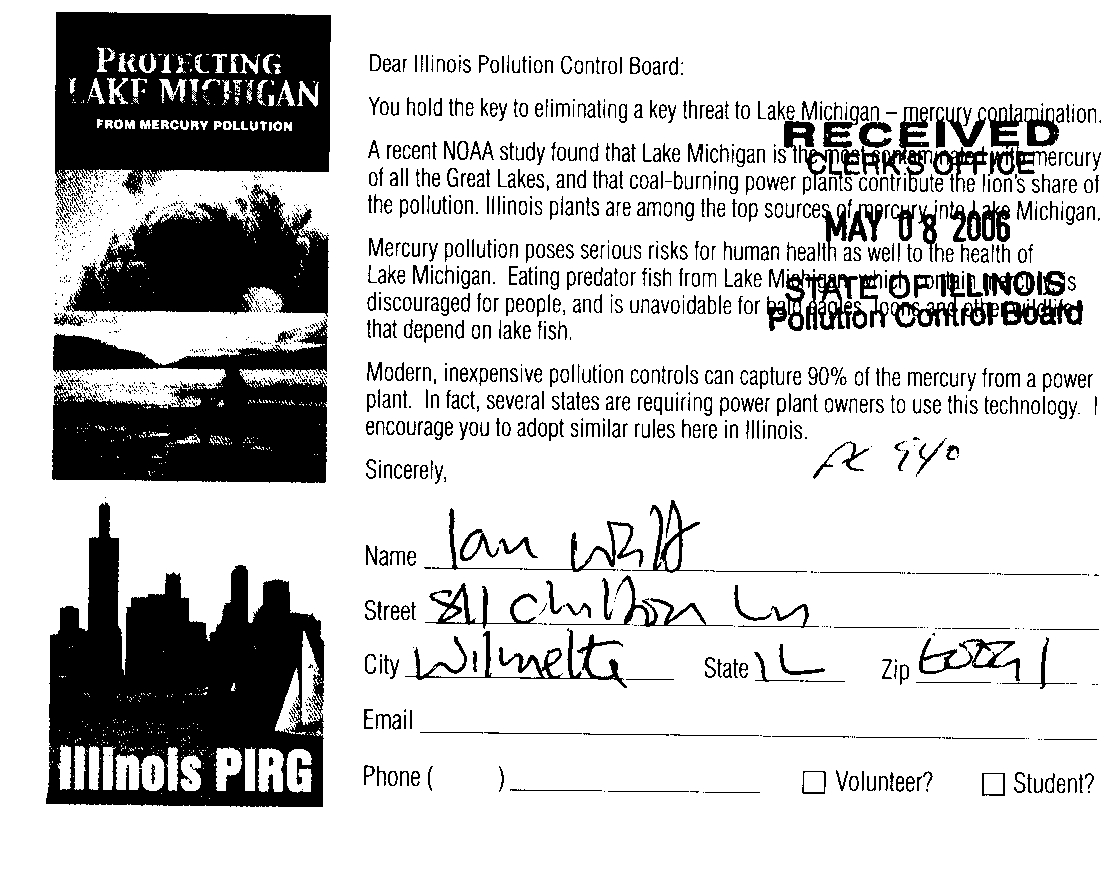 PROTECTING
LAKE MICHIGAN
FROM MERCURY POLLUTION
Illinois PIRG
Dear Illinois Pollution Control Board:
You hold the key to eliminating a key threat to Lake Michigan – mercury contamination.
A recent NOAA study found that Lake Michigan is the most contaminated with mercury
of all the Great Lakes, and that coal-burning power plants contribute the lion's share of
the pollution. Illinois plants are among the top sources of mercury into Lake Michigan.
RECEIVED
CLERK'S OFFICE
MAY 08 2006
STATE OF ILLINOIS
Pollution Control Board
Mercury pollution poses serious risks for human health as well to the health of
Lake Michigan. Eating predator fish from Lake Michigan, which contain mercury, is
discouraged for people, and is unavoidable for bald eagles, loons and other wildlife
that depend on lake fish.
Modern, inexpensive pollution controls can capture 90% of the mercury from a power
plant. In fact, several states are requiring power plant owners to use this technology. I
encourage you to adopt similar rules here in Illinois.
Sincerely,
Name Ian
Street 811 Ln
City Wilmette State IL Zip 60091
Email
Phone ( )
Volunteer? Student?